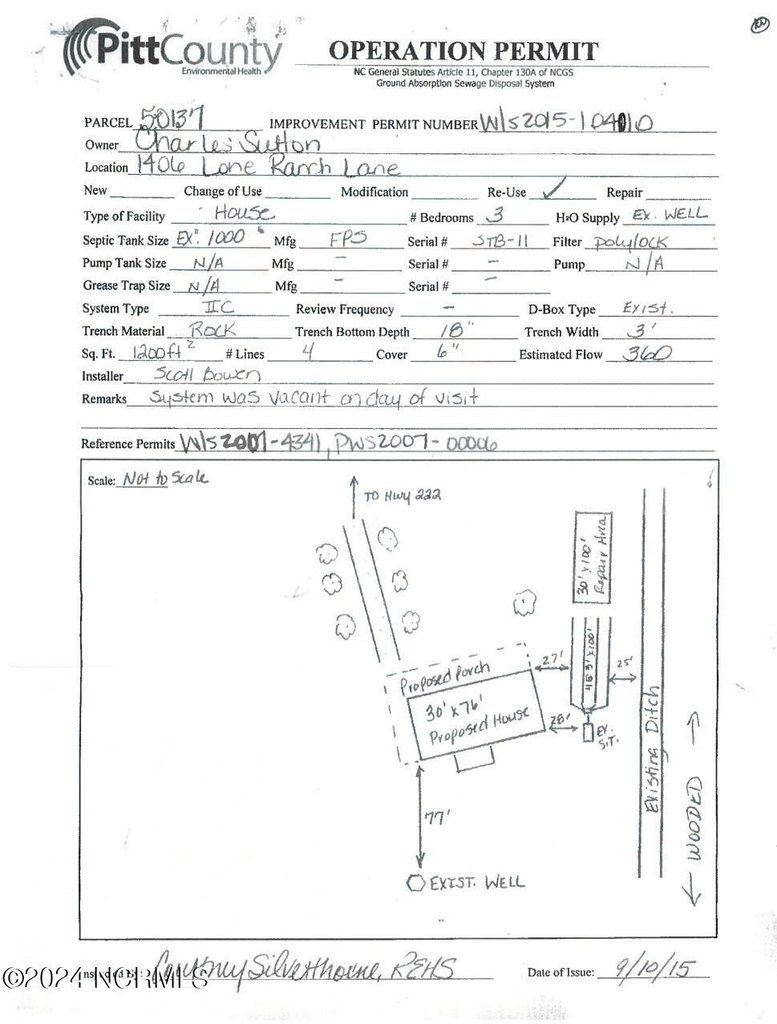 PittCounty
Environmental Health
OPERATION PERMIT
NC General Statutes Article 11, Chapter 130A of NCGS
Ground Absorption Sewage Disposal System
PARCEL 50137 IMPROVEMENT PERMIT NUMBER WlS2015-104010
Owner Charles Sutton
Location 1406 Lone Ranch Lane
New Change of Use Modification Re-Use ✓ Repair
Type of Facility House # Bedrooms 3 H2O Supply Ex. WELL
Septic Tank Size Ex. 1000 Mfg FPS Serial # STB-11 Filter polylock
Pump Tank Size N/A Mfg - Serial # - Pump N/A
Grease Trap Size N/A Mfg - Serial # -
System Type IIC Review Frequency - D-Box Type EXIST.
Trench Material Rock Trench Bottom Depth 18" Trench Width 3'
Sq. Ft. 1200ft² # Lines 4 Cover 6" Estimated Flow 360
Installer Scott Bowen
Remarks System was vacant on day of visit
Reference Permits WlS2001-4341, PWS2007-00006
Scale: Not to Scale
TO Hwy 222
30' x 100'
Repair Area
Proposed Porch
30' x 76'
Proposed House
27'
28'
25'
EX.
S.T.
Existing Ditch
← WOODED →
77'
EXIST. WELL
Courtney Silverthorne, REHS Date of Issue: 9/10/15
©2024 NCRMLS